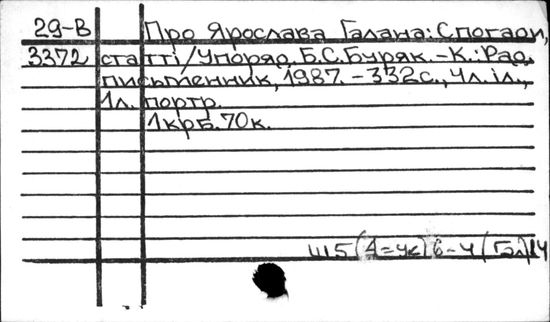 29-В Про Ярослава Галана: Спогади,
3372 статті/Упоряд. Б.С.Буряк.-К.: Рад.
письменник, 1987.-332с., 4л.іл.,
1л. портр.
1крб.70к.
Ш5(4=Ук)6-4(Гал)14